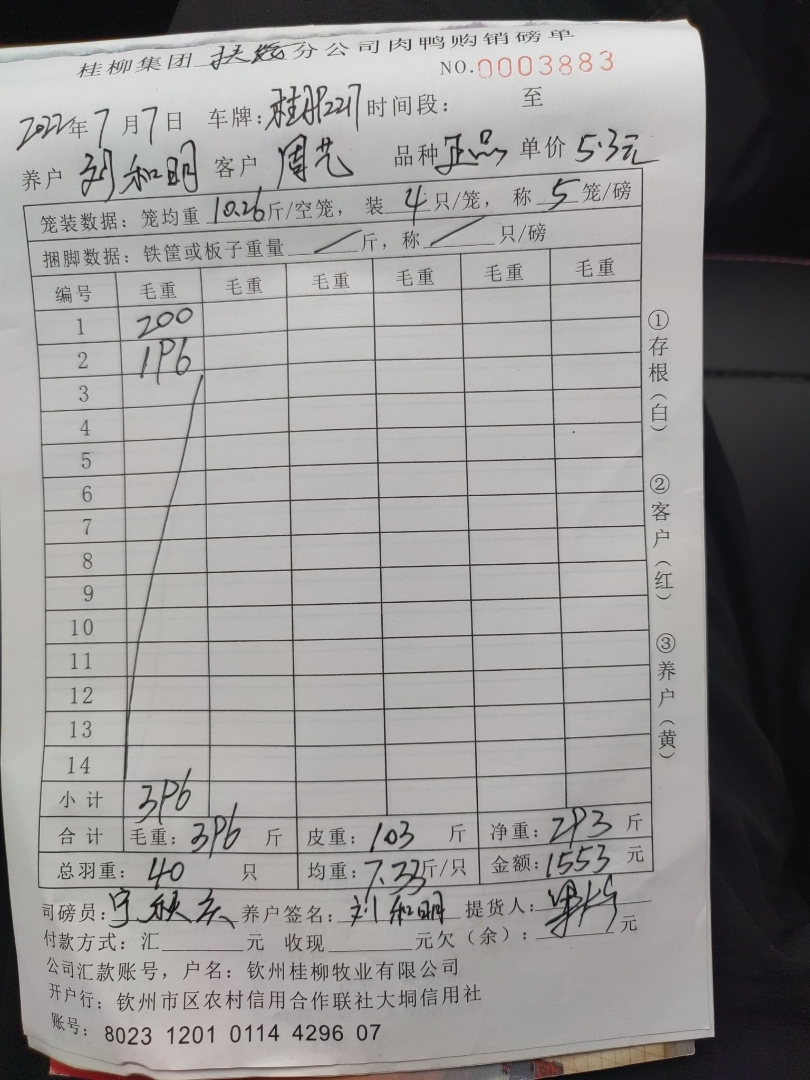 桂柳集团扶绥分公司肉鸭购销磅单
NO.0003883
2022年7月7日 车牌: 时间段: 至
养户 刘和明 客户 周艺 品种 正品 单价 5.3元
笼装数据: 笼均重 10.26 斤/空笼, 装 4 只/笼, 称 5 笼/磅
捆脚数据: 铁筐或板子重量 / 斤, 称 / 只/磅
编号 毛重 毛重 毛重 毛重 毛重 毛重
1 200
2 196
3
4
5
6
7
8
9
10
11
12
13
14
小计 396
合计 毛重: 396 斤 皮重: 103 斤 净重: 293 斤
总羽重: 40 只 均重: 7.33斤/只 金额: 1553 元
司磅员: 养户签名: 刘和明 提货人:
付款方式: 汇 元 收现 元欠(余): 元
公司汇款账号, 户名: 钦州桂柳牧业有限公司
开户行: 钦州市区农村信用合作联社大垌信用社
账号: 8023 1201 0114 4296 07
①存根(白)
②客户(红)
③养户(黄)